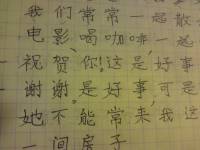 我们常常一起散
电影、喝咖啡,一起
祝贺你!这是好事
谢谢。是好事,可是
她不能常来我这
一间房子